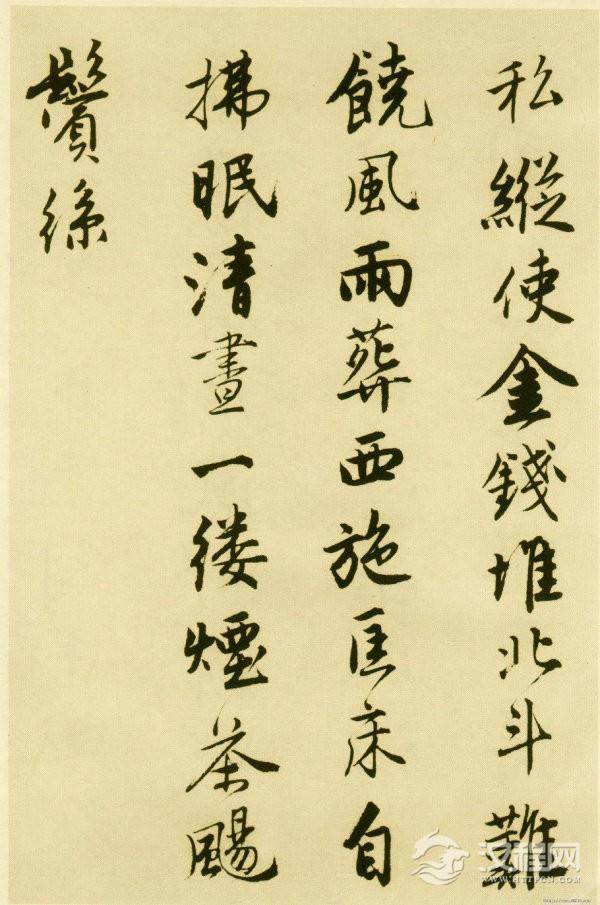 私縱使金錢堆北斗難
饒風雨葬西施匡床自
拂眠清晝一縷煙茶颺
鬢絲
汉程网
HTTPCN.COM